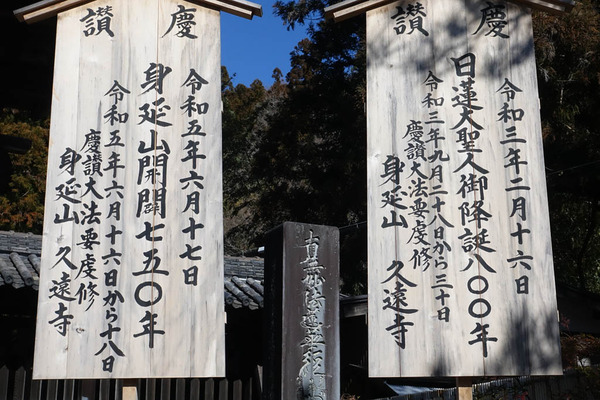 慶讃
令和三年二月十六日
日蓮大聖人御降誕八〇〇年
令和三年九月二十八日から三十日
慶讃大法要虔修
身延山 久遠寺
慶讃
令和五年六月十七日
身延山開闢七五〇年
令和五年六月十六日から十八日
慶讃大法要虔修
身延山 久遠寺